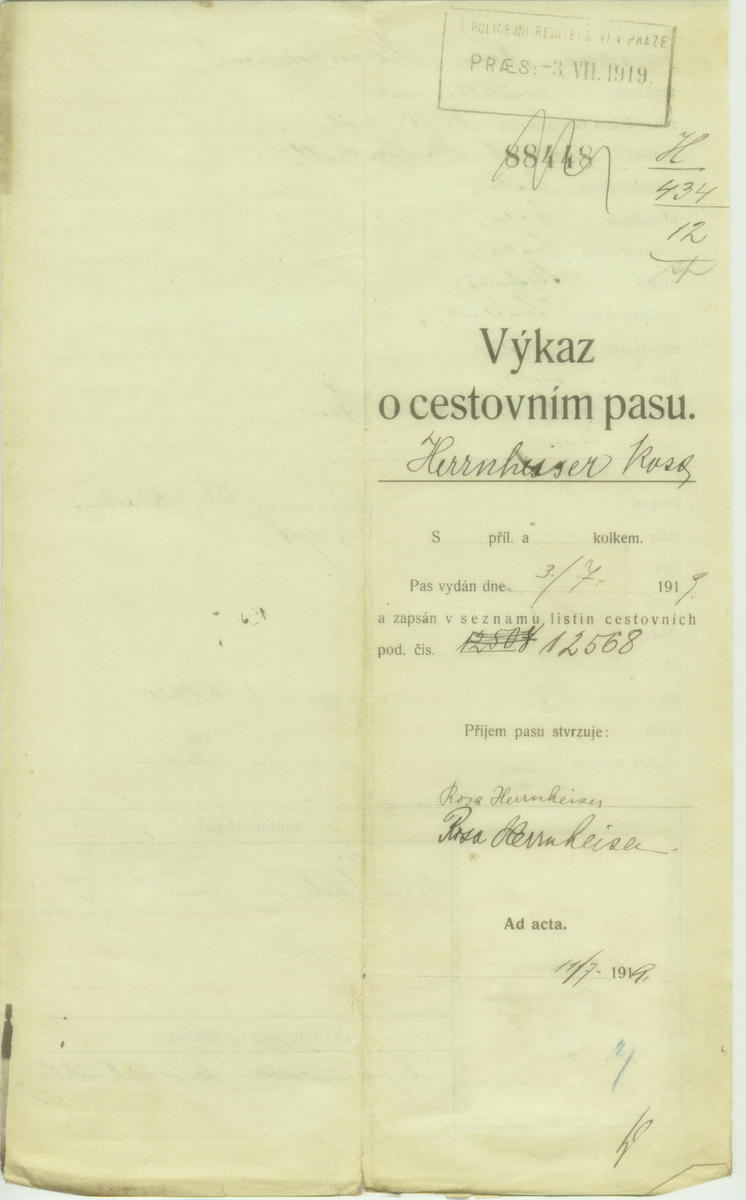 POLICEJNÍ ŘEDITELSTVÍ V PRAZE
PRÆS: -3. VII. 1919.
88448
H
434
12
Výkaz
o cestovním pasu.
Herrnheiser Rosa
S příl. a kolkem.
Pas vydán dne 3./7. 1919.
a zapsán v seznamu listin cestovních
pod. čís. 12568
Příjem pasu stvrzuje:
Rosa Herrnheiser
Rosa Herrnheiser
Ad acta.
11/7. 1919.